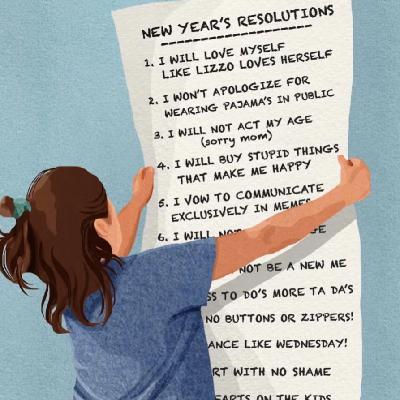 NEW YEAR'S RESOLUTIONS
1. I WILL LOVE MYSELF
LIKE LIZZO LOVES HERSELF
2. I WON'T APOLOGIZE FOR
WEARING PAJAMA'S IN PUBLIC
3. I WILL NOT ACT MY AGE
(sorry mom)
4. I WILL BUY STUPID THINGS
THAT MAKE ME HAPPY
5. I VOW TO COMMUNICATE
EXCLUSIVELY IN MEMES
6. I WILL NOT
NOT BE A NEW ME
TO DO'S MORE TA DA'S
NO BUTTONS OR ZIPPERS!
LIKE WEDNESDAY!
WITH NO SHAME
ON THE KIDS